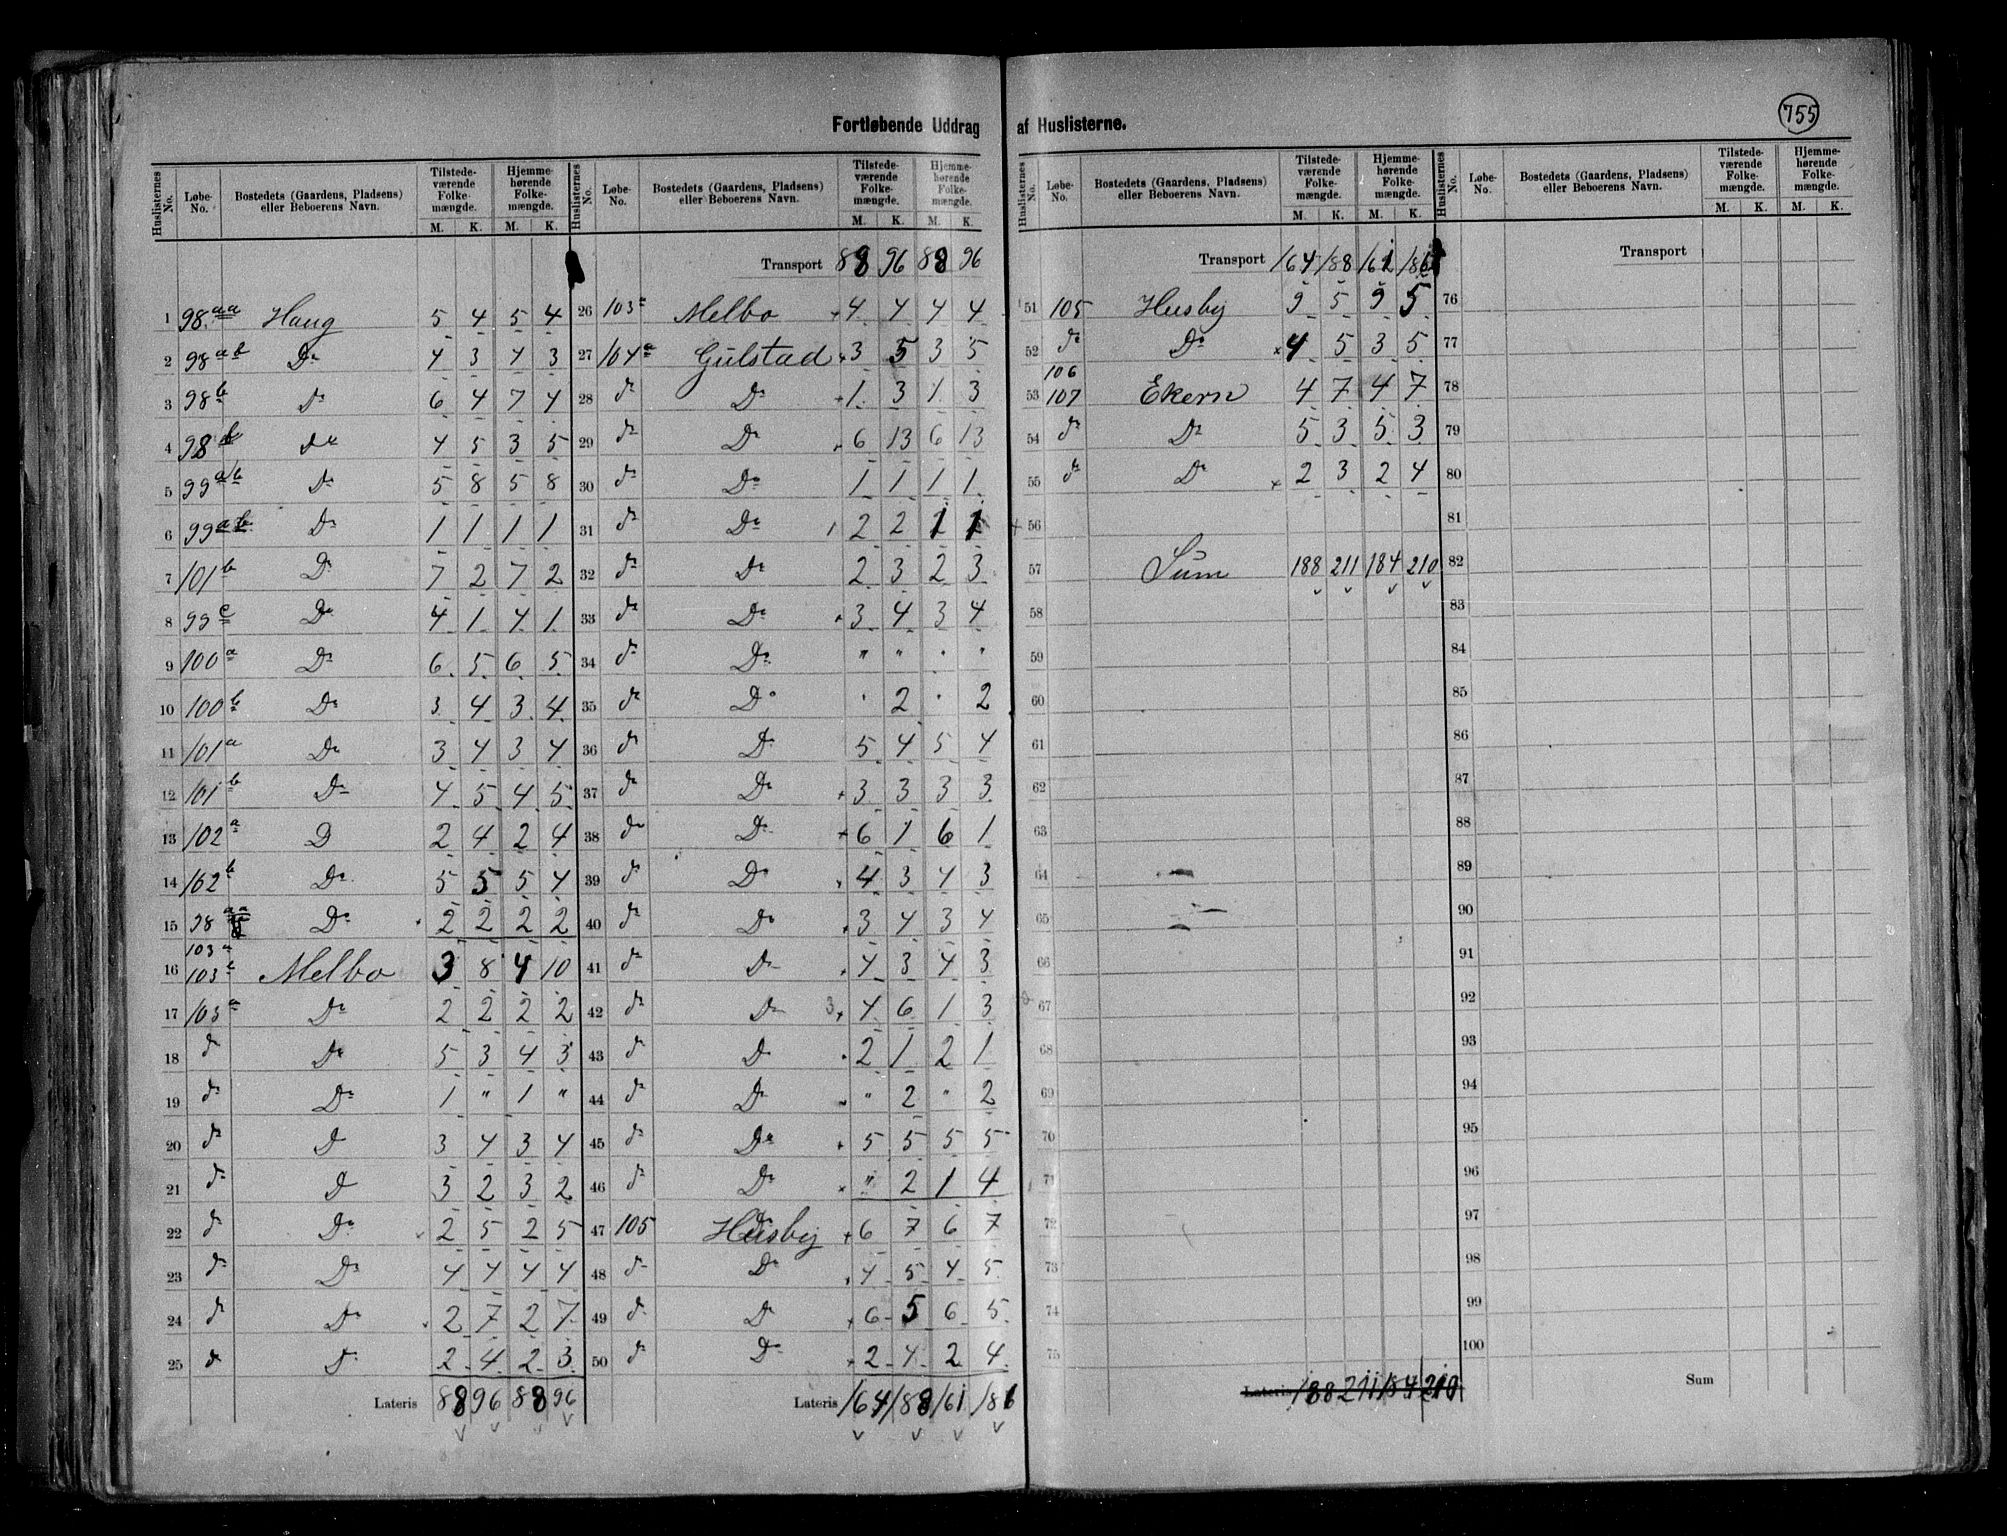 755
Fortløbende Uddrag af Huslisterne.
Huslisternes No. Løbe-No. Bostedets (Gaardens, Pladsens) eller Beboerens Navn. Tilstede-værende Folke-mængde. M. K. Hjemme-hørende Folke-mængde. M. K.
1 98aa Haug 5 4 5 4
2 98ab Do 4 3 4 3
3 98b Do 6 4 7 4
4 98b do 4 5 3 5
5 99ab Do 5 8 5 8
6 99ab Do 1 1 1 1
7 101b Do 7 2 7 2
8 99c Do 4 1 4 1
9 100a Do 6 5 6 5
10 100b Do 3 4 3 4
11 101a Do 3 4 3 4
12 101b Do 4 5 4 5
13 102a D 2 4 2 4
14 102b Do 5 5 5 4
15 98aa Do 2 2 2 2
103a
16 103c Melbo 3 8 4 10
17 103a Do 2 2 2 2
18 do Do 5 3 4 3
19 do Do 1 " 1 "
20 do D 3 4 3 4
21 do D 3 2 3 2
22 do Do 2 5 2 5
23 do Do 4 4 4 4
24 do Do 2 7 2 7
25 do Do 2 4 2 3
Lateris 88 96 88 96
Huslisternes No. Løbe-No. Bostedets (Gaardens, Pladsens) eller Beboerens Navn. Tilstede-værende Folke-mængde. M. K. Hjemme-hørende Folke-mængde. M. K.
Transport 88 96 88 96
26 103a Melbo 4 4 4 4
27 104a Gulstad 3 5 3 5
28 do Do 1 3 1 3
29 do Do 6 13 6 13
30 do Do 1 1 1 1
31 do Do 2 2 1 1
32 do Do 2 3 2 3
33 do Do 3 4 3 4
34 do Do " " " "
35 do Do " 2 " 2
36 do Do 5 4 5 4
37 do Do 3 3 3 3
38 do Do 6 1 6 1
39 do Do 4 3 4 3
40 do Do 3 4 3 4
41 do Do 4 3 4 3
42 do Do 3 4 6 1 3
43 do D 2 1 2 1
44 do Do " 2 " 2
45 do Do 5 5 5 5
46 do Do " 2 1 4
47 105 Husby 6 7 6 7
48 do Do 4 5 4 5
49 do D 6 5 6 5
50 do Do 2 4 2 4
Lateris 164 188 161 186
Huslisternes No. Løbe-No. Bostedets (Gaardens, Pladsens) eller Beboerens Navn. Tilstede-værende Folke-mængde. M. K. Hjemme-hørende Folke-mængde. M. K.
Transport 164 188 161 186
51 105 Husby 9 5 9 5
52 do Do 4 5 3 5
106
53 107 Ekern 4 7 4 7
54 do Do 5 3 5 3
55 do Do 2 3 2 4
56
57 Sum 188 211 184 210
58
59
60
61
62
63
64
65
66
67
68
69
70
71
72
73
74
75
Lateris 188 211 184 210
Huslisternes No. Løbe-No. Bostedets (Gaardens, Pladsens) eller Beboerens Navn. Tilstede-værende Folke-mængde. M. K. Hjemme-hørende Folke-mængde. M. K.
Transport
76
77
78
79
80
81
82
83
84
85
86
87
88
89
90
91
92
93
94
95
96
97
98
99
100
Sum